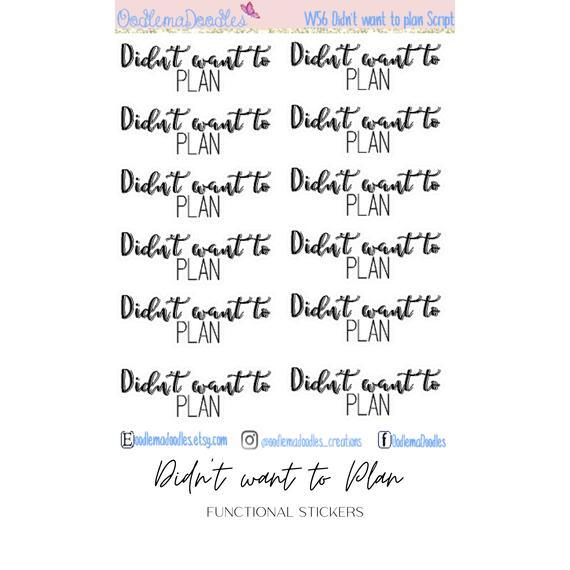 OodlemaDoodles W56 Didn't want to plan Script
Didn't want to Didn't want to
PLAN PLAN
Didn't want to Didn't want to
PLAN PLAN
Didn't want to Didn't want to
PLAN PLAN
Didn't want to Didn't want to
PLAN PLAN
Didn't want to Didn't want to
PLAN PLAN
Didn't want to Didn't want to
PLAN PLAN
E oodlemadoodles.etsy.com @oodlemadoodles_creations f OodlemaDoodles
Didn't want to Plan
FUNCTIONAL STICKERS